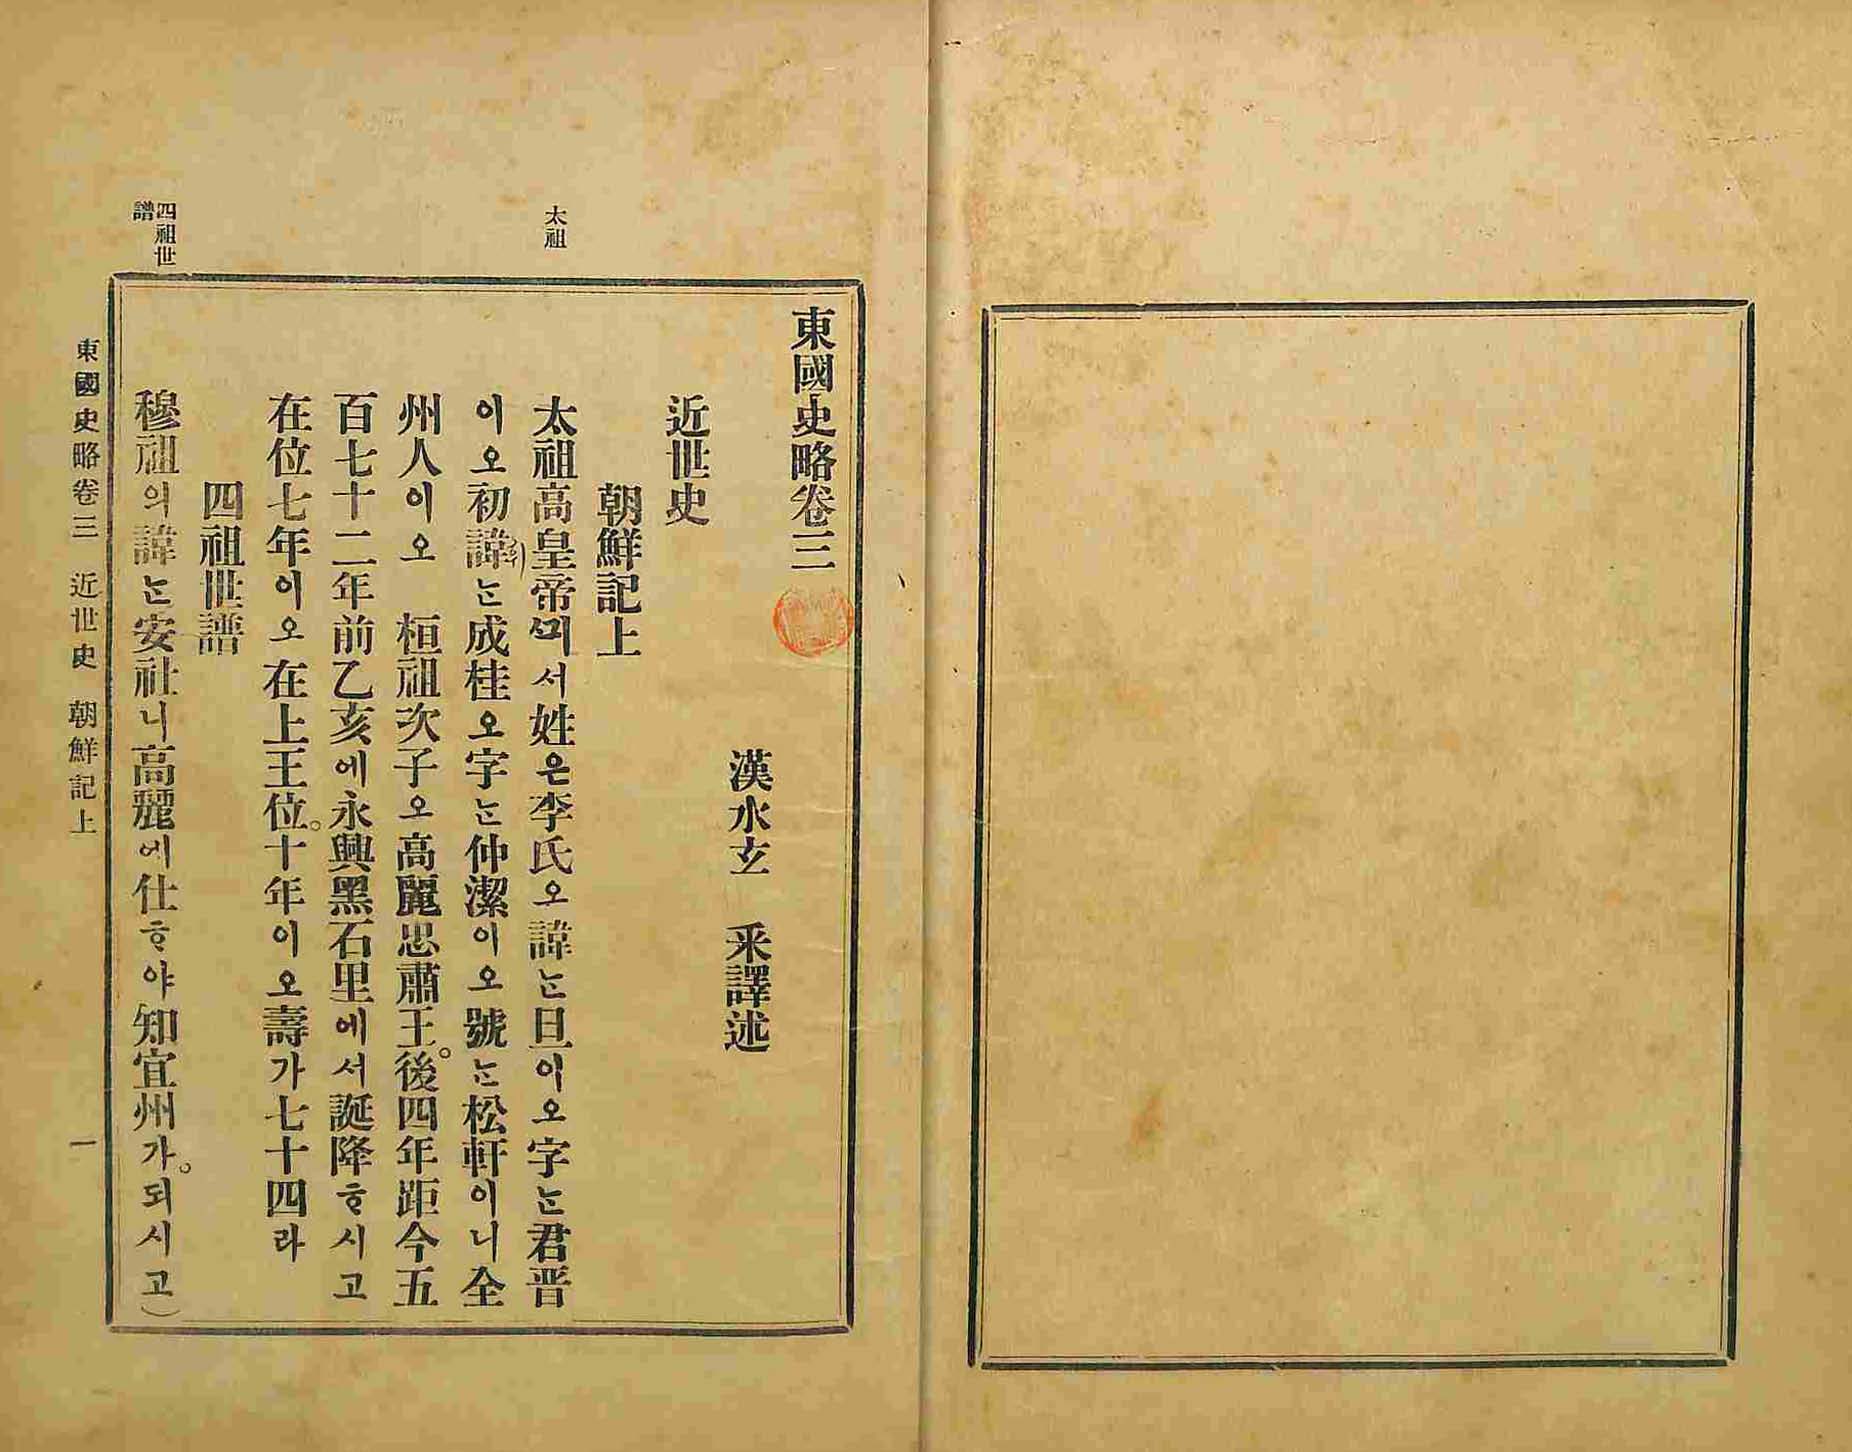 東國史略卷三
漢水玄　采譯述
近世史
朝鮮記上
太祖
太祖高皇帝ᄭᅴ서姓은李氏오諱ᄂᆞᆫ旦이오字ᄂᆞᆫ君晋
이오初諱ᄂᆞᆫ成桂오字ᄂᆞᆫ仲潔이오號ᄂᆞᆫ松軒이니全
州人이오　桓祖次子오高麗忠肅王。後四年距今五
百七十二年前乙亥에永興黑石里에서誕降ᄒᆞ시고
在位七年이오在上王位。十年이오壽가七十四라
四祖世
譜
四祖世譜
穆祖의諱ᄂᆞᆫ安社니高麗에仕ᄒᆞ야知宜州가。되시고
東國史略卷三　近世史　朝鮮記上　一